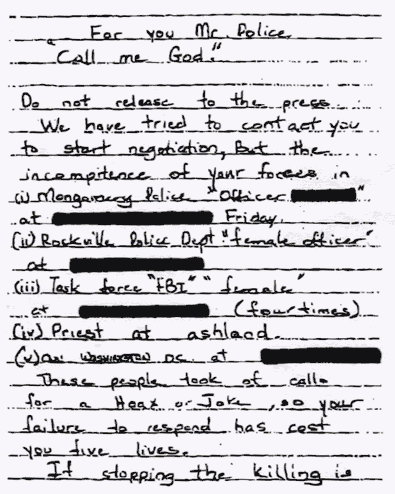 For you Mr. Police
"Call me God."
Do not release to the press.
We have tried to contact you
to start negotiation, But the
incompitence of your forces in
(i) Montgomery Police "Officer "
at Friday.
(ii) Rockville Police Dept "female officer"
at
(iii) Task force "FBI" "female"
at (four times)
(iv) Priest at ashland.
(v) WASHINGTON DC at
These people took of calls
for a Hoax or Joke, so your
failure to respond has cost
you five lives.
If stopping the killing is